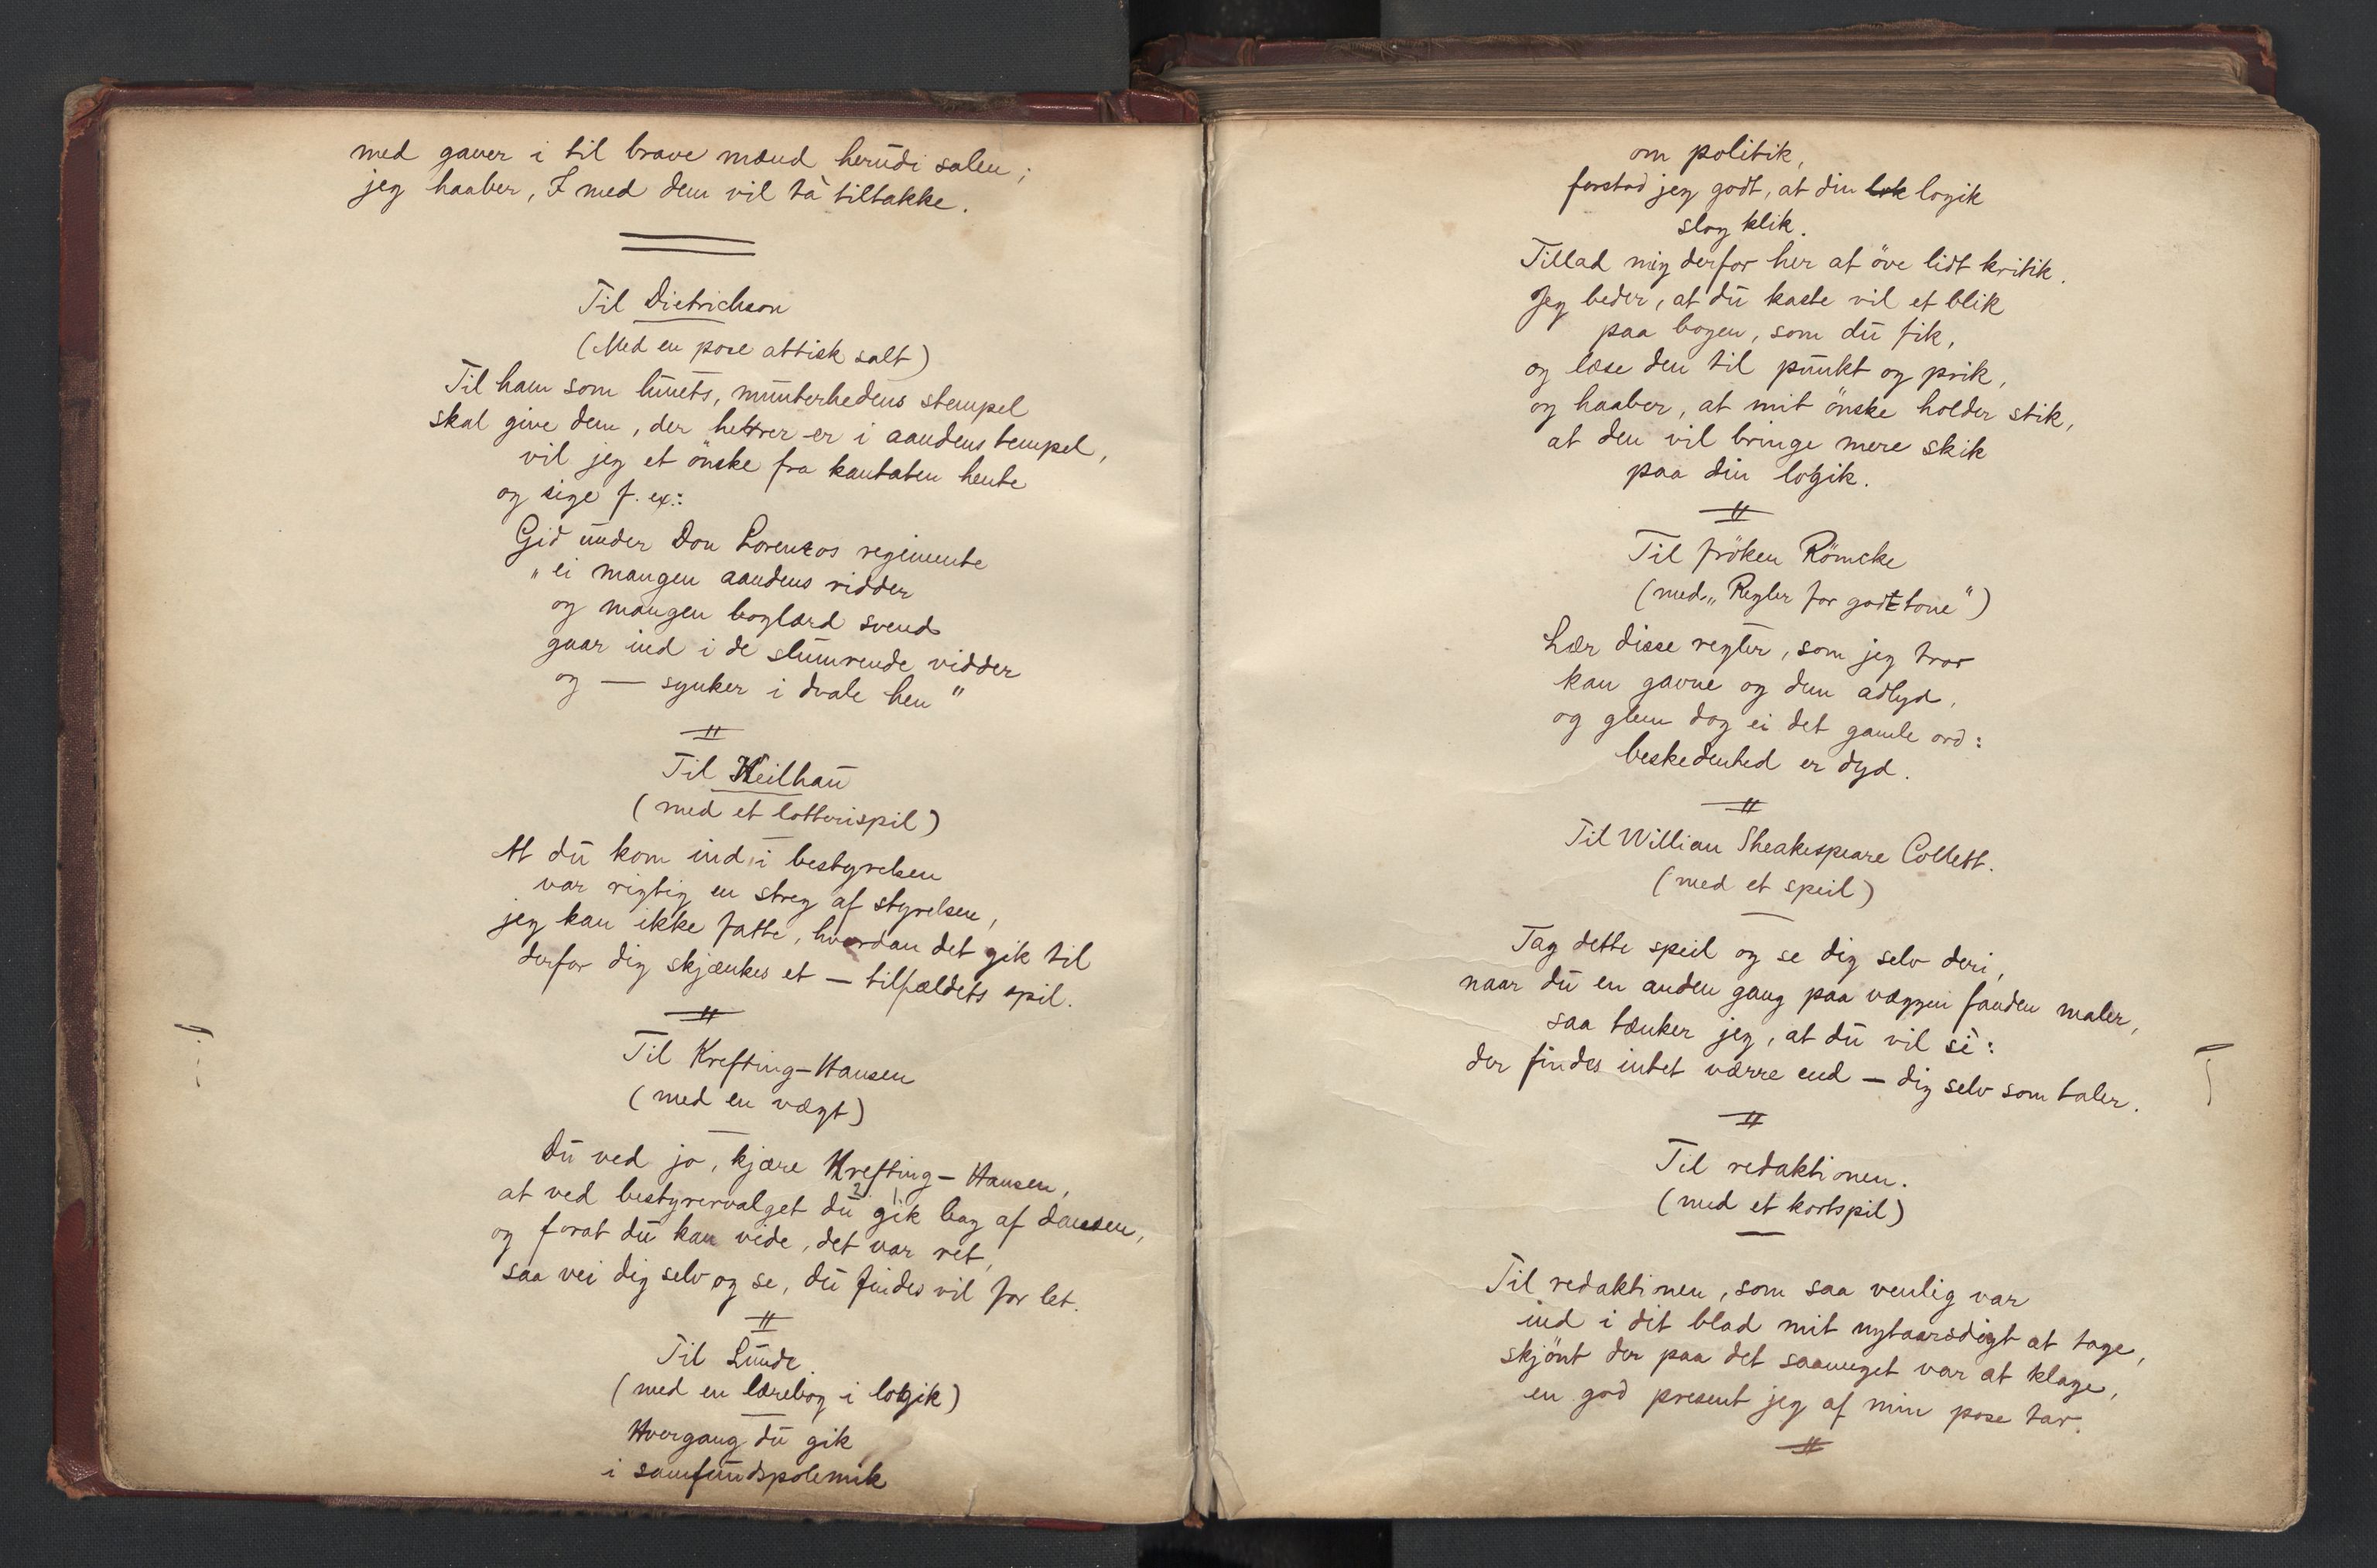 med gaver i til brave mænd herudi salen;
jeg haaber, I med dem vil ta tiltakke.
Til Dietrichson
(Med en pose attisk salt)
Til ham som lunets, munterhedens stempel
skal give dem, der hersker er i aandens tempel,
vil jeg et önske fra kantaten hente
og sige f. ex.:
Gid under Don Lorenzos regimente
"ei mangen aandens ridder
og mangen boglærd svend
gaar ind i de slumrende vidder
og — synker i dvale hen"
Til Keilhau
(med et lotterispil)
At du kom ind i bestyrelsen
var rigtig en streg af styrelsen,
jeg kan ikke fatte, hvordan det gik til
derfor dig skjænkes et — tilfældets spil.
Til Krefting-Hansen
(med en vægt)
Du ved jo, kjære Krefting-Hansen,
at ved bestyrervalget du gik bag af dansen,
og forat du kan vide, det var ret,
saa vei dig selv og se, du findes vil for let.
Til Lunde
(med en lærebog i logik)
Hvergang du gik
i samfundspolemik
om politik,
forstod jeg godt, at din lok logik
slog klik.
Tillad mig derfor her at öve lidt kritik.
Jeg beder, at du kaste vil et blik
paa bogen, som du fik,
og læse den til punkt og prik,
og haaber, at mit önske holder stik,
at den vil bringe mere skik
paa din logik.
Til fröken Römcke
(med "Regler for god tone")
Lær disse regler, som jeg tror
kan gavne og dem adlyd,
og glem dog ei det gamle ord:
beskedenhed er dyd.
Til William Sheakespeare Collett.
(med et speil)
Tag dette speil og se dig selv deri,
naar du en anden gang paa væggen fanden maler,
saa tænker jeg, at du vil si:
der findes intet værre end — dig selv som taler.
Til redaktionen.
(med et kortspil)
Til redaktionen, som saa venlig var
ind i dit blad mit nytaarsdigt at tage,
skjönt der paa det saameget var at klage,
en god present jeg af min pose tar.